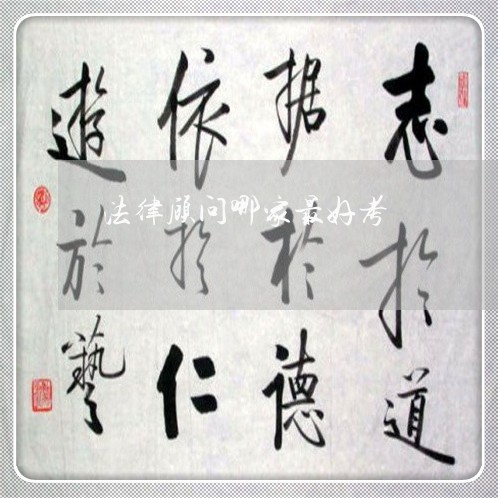 志於道
据於德
依於仁
遊於藝
法律顾问哪家最好考